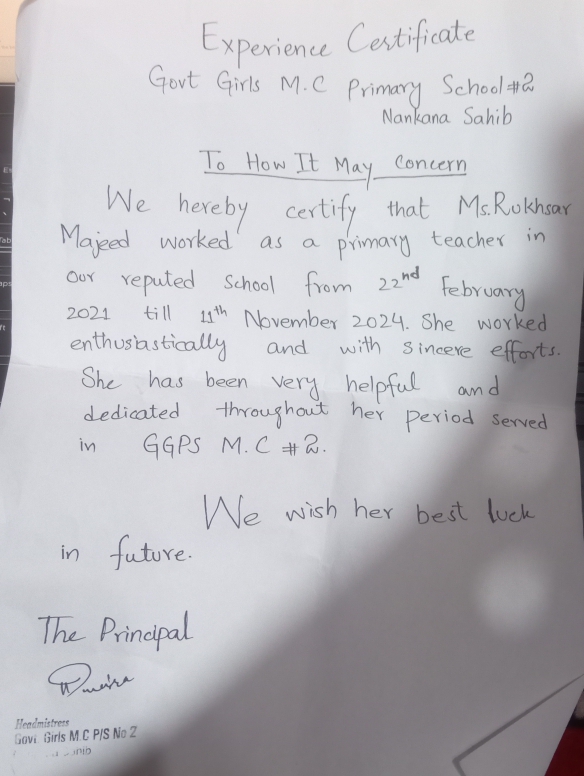 Experience Certificate
Govt Girls M.C Primary School #2
Nankana Sahib
To How It May Concern
We hereby certify that Ms.Rukhsar
Majeed worked as a primary teacher in
our reputed school from 22nd February
2021 till 11th November 2024. She worked
enthusiastically and with sincere efforts.
She has been very helpful and
dedicated throughout her period served
in GGPS M.C #2.
We wish her best luck
in future.
The Principal
Headmistress
Govt. Girls M.C P/S No 2